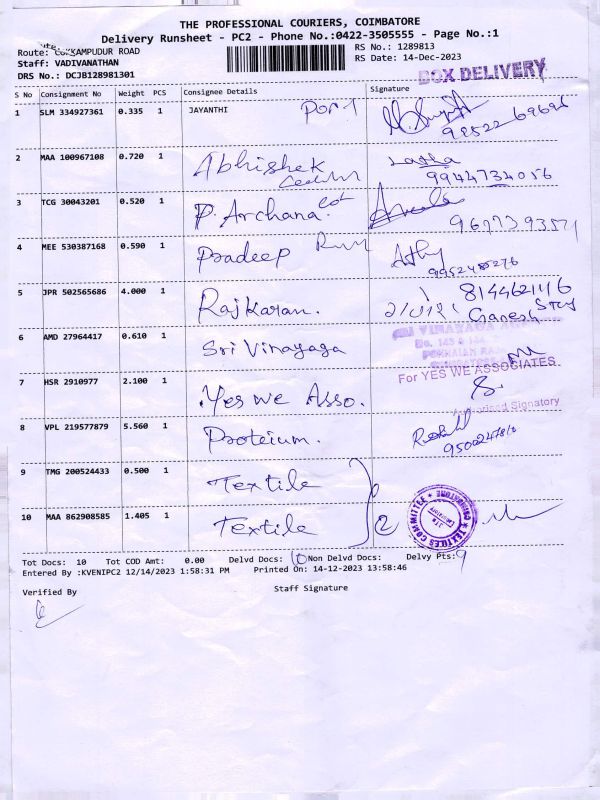 THE PROFESSIONAL COURIERS, COIMBATORE
Delivery Runsheet - PC2 - Phone No.:0422-3505555 - Page No.:1
Route: KAMPUDUR ROAD
RS No.: 1289813
Staff: VADIVANATHAN
RS Date: 14-Dec-2023
DRS No.: DCJB128981301
BOX DELIVERY
S No Consignment No Weight PCS Consignee Details Signature
1 SLM 334927361 0.335 1 JAYANTHI
2 MAA 100967108 0.720 1 Abhishek Latha
9944734056
3 TCG 30043201 0.520 1 P. Archana.
4 MEE 530387168 0.590 1 Pradeep
5 JPR 502565686 4.000 1 Rajkaran. 8144621116
Ganesh
6 AMD 27964417 0.610 1 Sri Vinayaga
For YES WE ASSOCIATES
7 HSR 2910977 2.100 1 Yes we Asso.
Authorised Signatory
8 VPL 219577879 5.560 1 Proteium.
9 TMG 200524433 0.500 1 Textile
10 MAA 862908585 1.405 1 Textile 2
TEXTILES COMMITTEE ★ COIMBATORE ★
Tot Docs: 10 Tot COD Amt: 0.00 Delvd Docs: 10 Non Delvd Docs: Delvy Pts: 9
Entered By :KVENIPC2 12/14/2023 1:58:31 PM Printed On: 14-12-2023 13:58:46
Verified By Staff Signature